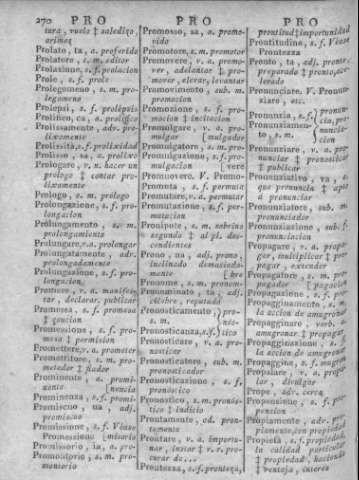 270 PRO PRO PRO
tura, vuelo ‡ saledizo,
Prolato, ta, a. proferido
Prolatore, s. m. editor
Prolazione, s. f. prolacion
Prole, s. f. prole
Prolegomeno, s. m. pro-
legomeno
Prolepsi, s. f. prolépsis
Prolissamente, adv. pro-
lixamente
Prolissità, s. f. prolixidad
Prolisso, sa, a. prolixo
Prologare, v. n. hacer un
prologo ‡ contar pro-
lixamente
Prologo, s. m. prólogo
Prolongazione, s. f. pro-
longacion
Prolungamento, s. m.
prolongamiento
Prolungare, v. a. prolongar
Prolungatamente, adv.
prolongadamente
Prolungazione, s. f. pro-
longacion
tar, declarar, publicar
Promessa, s. f. promesa
Promessione, s. f. pro-
mesa ‡ permision
Promettere, v. a. prometer
Promettitore, s. m. pro-
metedor ‡ fiador
Prominente, a. promi-
nente
Prominenza, s. f. promi-
Promiscuo, ua, adj.
promiscuo
Promissione, s. f. Véase
Promessione
Promissorio, ia, a. pro-
Promontorio, s. m. pro-
montorio
Promosso, sa, a. promo-
vido
Promotore, s. m. promotor
Promovere, v. a. promo-
ver, adelantar ‡ pro-
mover, elevar, levantar
Promovimento, sub. m.
promocion
Promozione, s. f. pro-
mocion ‡ incitacion
Promulgare, v. a. pro-
mulgar
Promulgatore, s. m. pro-
mulgador
Promulgazione, s. f. pro-
mulgacion
Promuovere. V. Promo-
vere
Promuta, s. f. permuta
Promutare, v. a. permutar
Promutazione, s. f. per-
mutacion
Pronipote, s. m. sobrino
segundo ‡ al pl. des-
cendientes
Prono, na, adj. prono,
inclinado demasiada-
mente
Pronome, s. m. pronom-
bre
Pronominato, ta, adj.
célebre, reputado
Pronosticamento,
s. m.
Pronosticanza, s. f.
Pronosticare, v. a. pro-
nosticar
Pronosticatore, sub. m.
pronosticador
Pronosticazione, s. f.
pronosticacion
Pronostico, s. m. pronós-
tico ‡ indicio
Prontamente, ad. pron-
tamente
Prontare, v. a. importu-
nar, instar ‡ v. r. pro-
curar de...
Prontezza, s. f. pronteza,
prontitud ‡ importunidad
Prontitudine, s. f. Véase
Prontezza
Pronto, ta, adj. pronto,
preparado ‡ pronto, ace-
lerado
Pronunciare. V. Pronun-
ziare, etc.
Pronunzia, s. f.
Pronunziamen-
to, s. m.
Pronunziare, v. a. pro-
nunciar ‡ pronosticar
‡ publicar
Pronunziativo, va, a.
que pronuncia ‡ apto
al pronunciar
Pronunziatore, sub. m.
pronunciador
Pronunziazione, sub. f.
pronunciacion
Propagare, v. a. propa-
gar, multiplicar ‡ pro-
pagar, extender
Propagatore, s. m. pro-
pagador
Propagazione, s. f. pro-
pagacion
Propagginamento, s. m.
la accion de amugronar
Propagginare, verb. a.
amugronar ‡ propagar
Propagginazione, s. f.
la accion de amugronar
Propaggine, s. f. mugron
Propalare, v. a. propa-
lar, divulgar
Prope, adv. cerca
Propensione, s. f. pro-
pension
Propiamente, adv. pro-
piamente, con propiedad
Propietà, s. f. propiedad,
la calidad particular
‡ propiedad, hacienda
‡ ventaja, interes